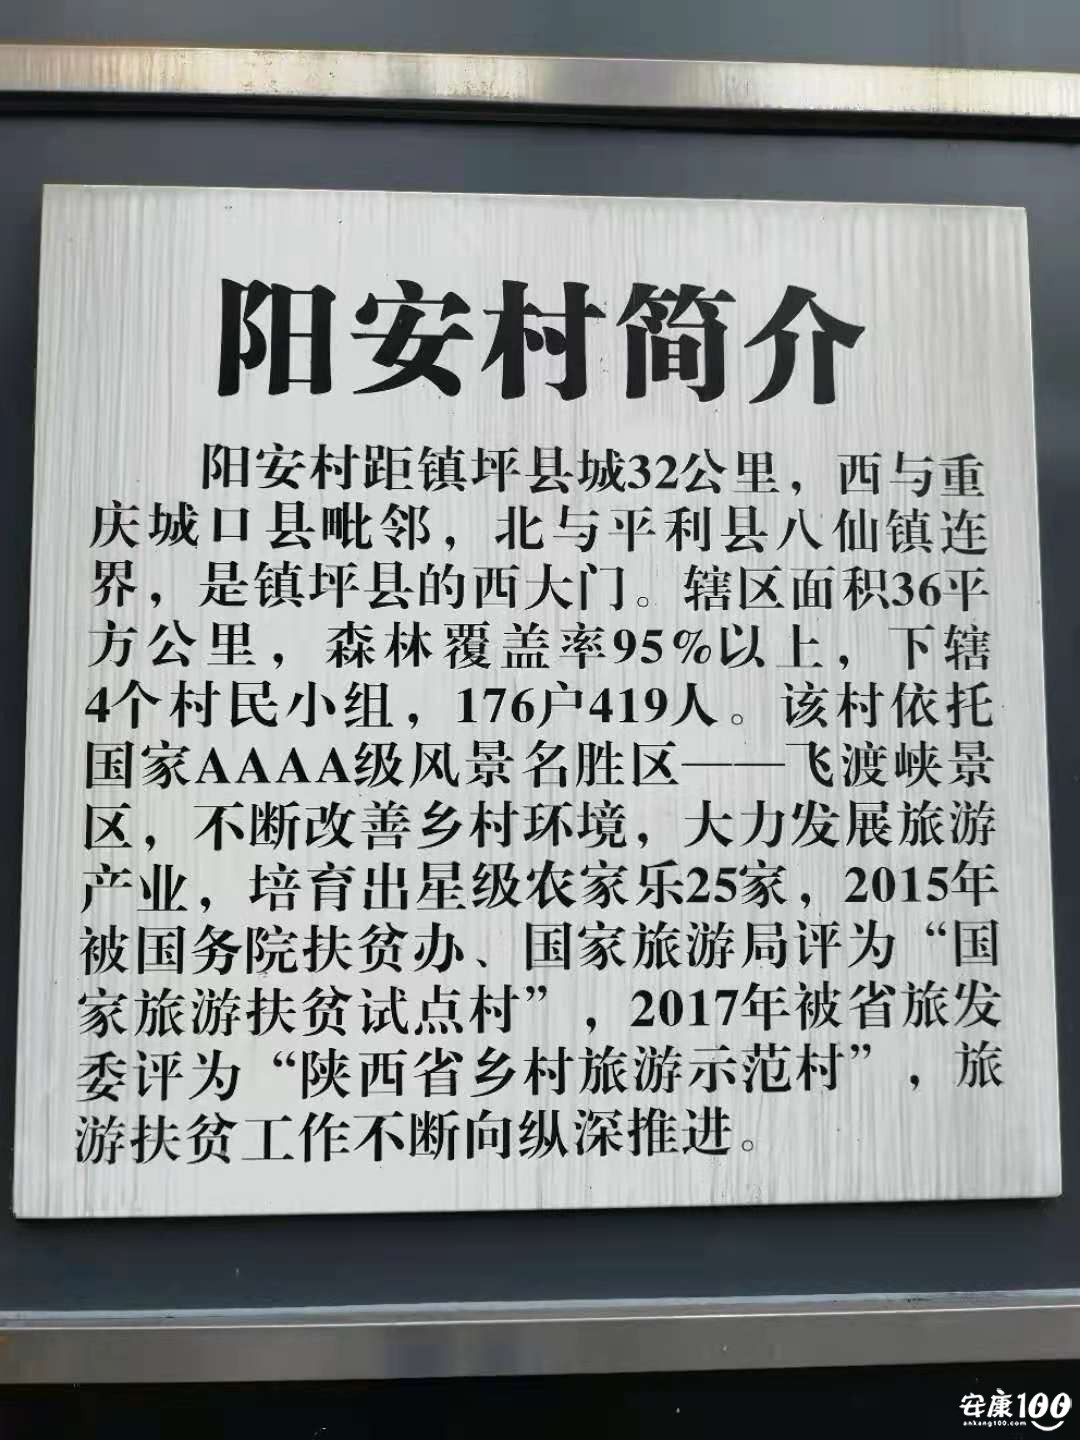 阳安村简介
阳安村距镇坪县城32公里，西与重
庆城口县毗邻，北与平利县八仙镇连
界，是镇坪县的西大门。辖区面积36平
方公里，森林覆盖率95%以上，下辖
4个村民小组，176户419人。该村依托
国家AAAA级风景名胜区——飞渡峡景
区，不断改善乡村环境，大力发展旅游
产业，培育出星级农家乐25家，2015年
被国务院扶贫办、国家旅游局评为“国
家旅游扶贫试点村”，2017年被省旅发
委评为“陕西省乡村旅游示范村”，旅
游扶贫工作不断向纵深推进。
安康100
ankang100.com